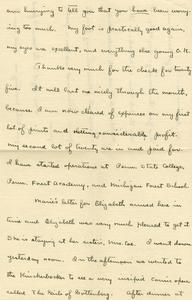 am hurrying to tell you that you have been worry-
ing too much. My foot is practically good again,
my eyes are excellent, and everything else going O.K.
Thanks very much for the checks for twenty
five. It will last me nicely through the month,
because I am now cleared of expense on my first
lot of prints and making considerable profit.
My second lot of twenty are in and paid for.
I have started operations at Penn State College,
Penn. Forest Academy, and Michigan Forest School.
Marie's letter for Elizabeth arrived here in
time and Elizabeth was very much pleased to get it.
She is staying at her sister, Mrs. Coe. I went down
yesterday noon. In the afternoon we went to
the Knickerbocker to see a very refined comic opera
called The Girls of Gottenberg. After dinner I